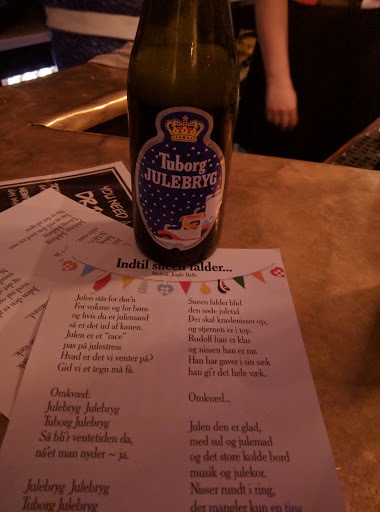 Tuborg
JULEBRYG
YOU NEED
Indtil sneen falder...
Melodi: Jingle Bells
Julen står for dør'n
For voksne og for børn
og hvis du er julemand
så er det ud af kanen.
Julen er et "race"
pas på julestress
Hvad er det vi venter på?
Gid vi et tegn må få.
Omkvæd:
Julebryg Julebryg
Tuborg Julebryg
Så bli'r ventetiden da,
nå'et man nyder ~ ja.
Julebryg Julebryg
Tuborg Julebryg
Sneen falder blid
den søde juletid
Der skal kravlenisser op,
og stjernen er i top.
Rudolf han er klar
og nissen han er rar.
Han har gaver i sin sæk
han gi'r det hele væk.
Omkvæd...
Julen den er glad,
med sul og julemad
og det store kolde bord
musik og julekor.
Nisser rundt i ring,
der mangler kun en ting